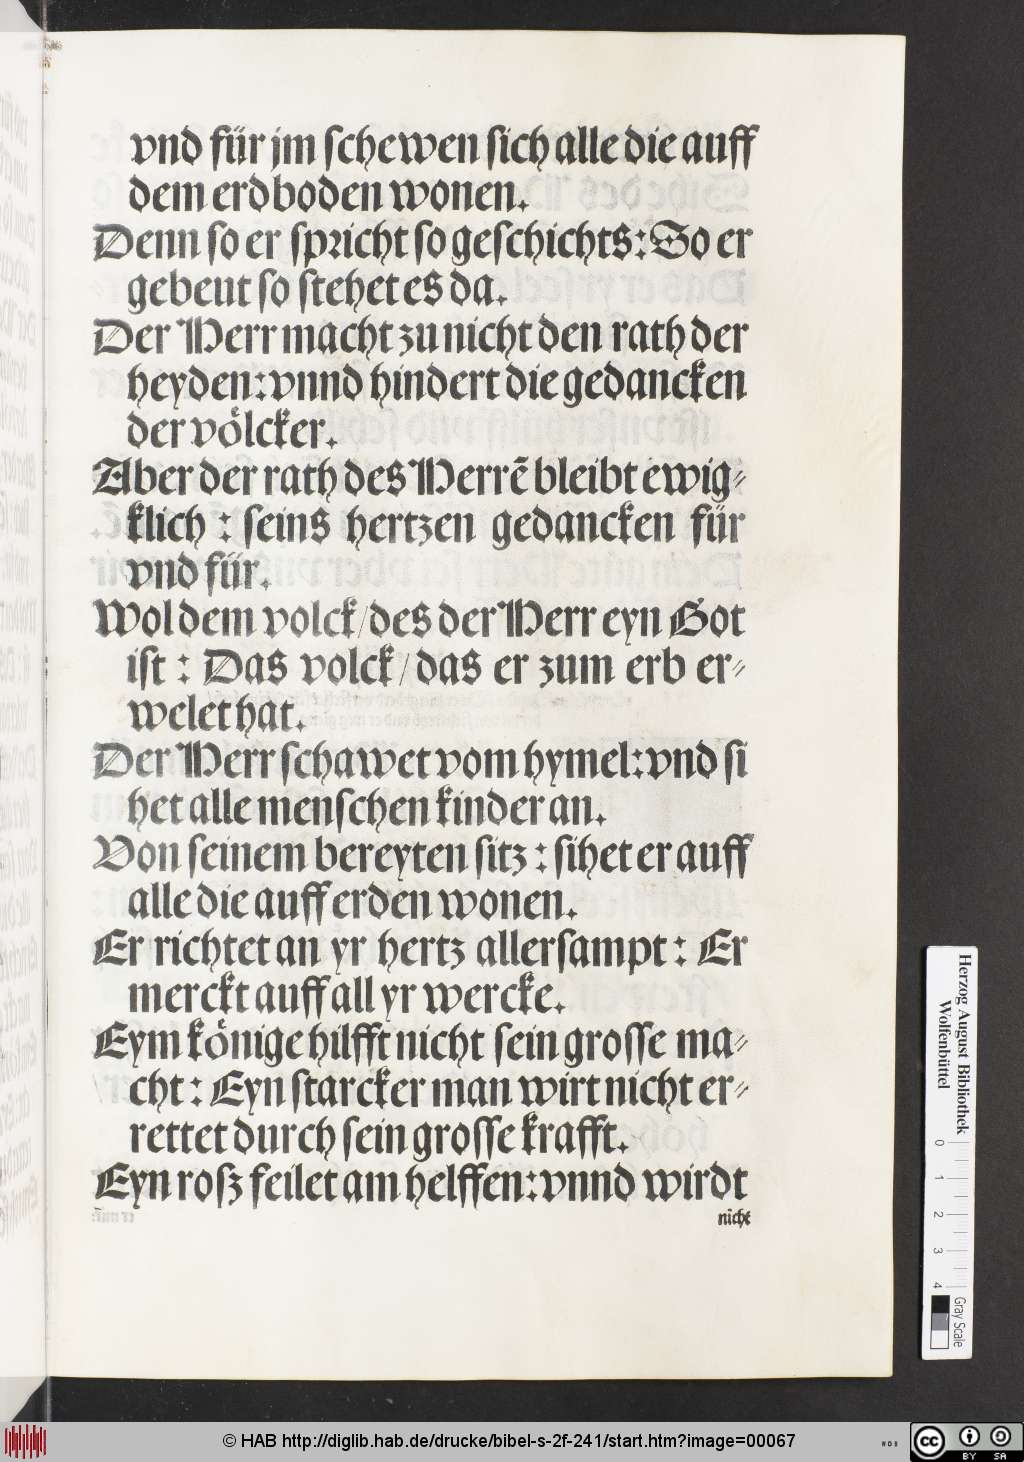 vnd für jm schewen sich alle die auff
dem erdboden wonen.
Denn so er spricht so geschichts: So er
gebeut so stehet es da.
Der Herr macht zu nicht den rath der
heyden: vnnd hindert die gedancken
der völcker.
Aber der rath des Herrẽ bleibt ewig-
klich : seins hertzen gedancken für
vnd für.
Wol dem volck/ des der Herr eyn Got
ist : Das volck / das er zum erb er-
welet hat.
Der Herr schawet vom hymel: vnd si
het alle menschen kinder an.
Von seinem bereyten sitz : sihet er auff
alle die auff erden wonen.
Er richtet an yr hertz allersampt : Er
merckt auff all yr wercke.
Eym könige hilfft nicht sein grosse ma-
cht : Eyn starcker man wirt nicht er-
rettet durch sein grosse krafft.
Eyn rosz feilet am helffen: vnnd wirdt
nicht
Herzog August Bibliothek
Wolfenbüttel
0 1 2 3 4
Gray Scale
© HAB http://diglib.hab.de/drucke/bibel-s-2f-241/start.htm?image=00067
WDB
cc
BY SA